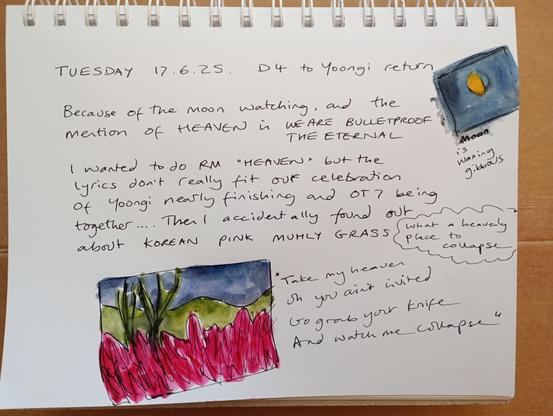 TUESDAY 17.6.25. D4 to Yoongi return
Because of the moon watching, and the
mention of HEAVEN in WE ARE BULLETPROOF
THE ETERNAL
Moon
is
waning
gibbous
I wanted to do RM "HEAVEN" but the
lyrics don't really fit our celebration
of Yoongi nearly finishing and OT7 being
together.... Then I accidentally found out
about KOREAN PINK MUHLY GRASS
what a heavenly
place to
collapse
"Take my heaven
Oh you ain't invited
Go grab your knife
And watch me collapse"